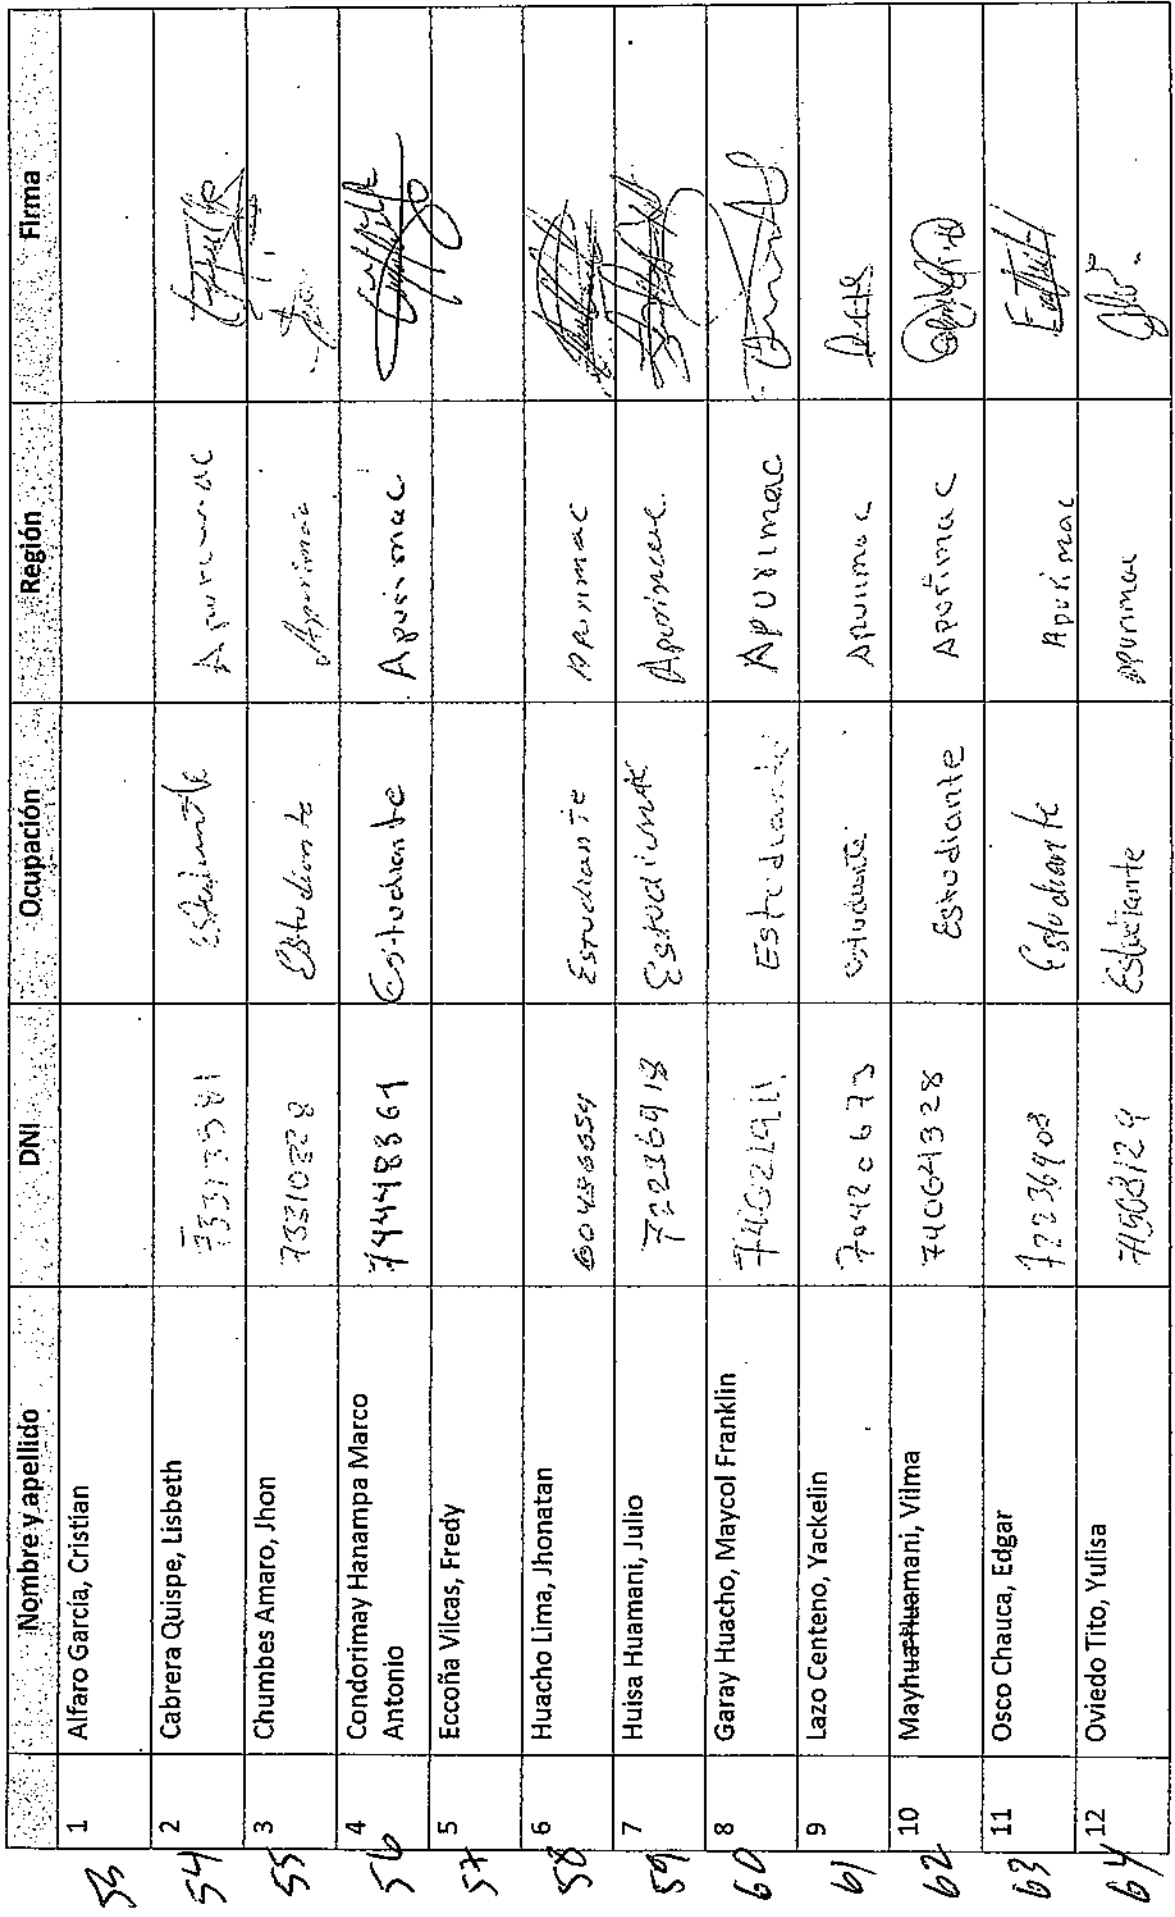 Nombre y apellido DNI Ocupación Región Firma
53 1 Alfaro García, Cristian
54 2 Cabrera Quispe, Lisbeth 73313581 Estudiante Apurimac
55 3 Chumbes Amaro, Jhon Estudiante Apurimac
56 4 Condorimay Hanampa Marco
Antonio 74448361 Estudiante Apurimac
57 5 Eccoña Vilcas, Fredy
58 6 Huacho Lima, Jhonatan Estudiante Apurimac
59 7 Huisa Huamani, Julio 72236918 Estudiante Apurimac
60 8 Garay Huacho, Maycol Franklin Estudiante APURIMAC
61 9 Lazo Centeno, Yackelin 70420673 estudiante Apurimac
62 10 Mayhua Huamani, Vilma 74064328 Estudiante Apurimac
63 11 Osco Chauca, Edgar 72236908 Estudiante Apurimac
64 12 Oviedo Tito, Yulisa Estudiante apurimac